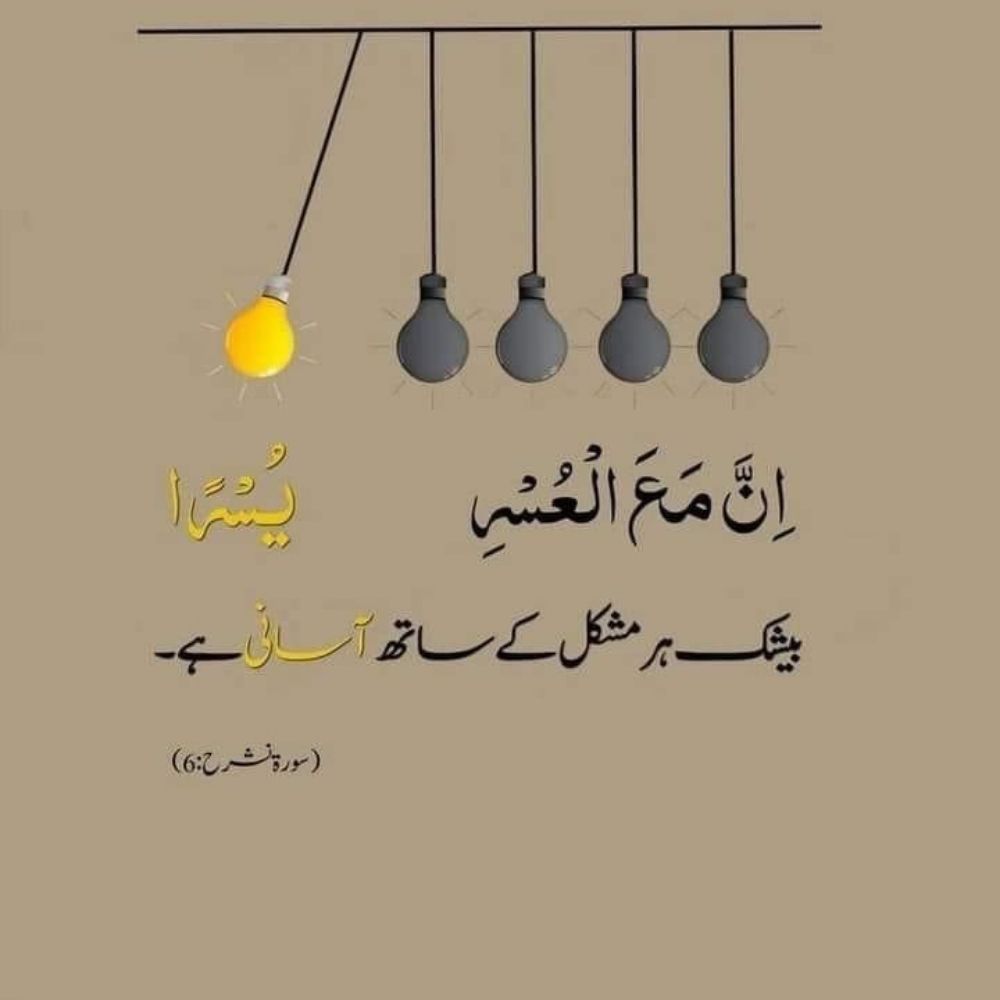 اِنَّ مَعَ الْعُسْرِ يُسْرًا
بیشک ہر مشکل کے ساتھ آسانی ہے۔
(سورۃ نشرح:6)